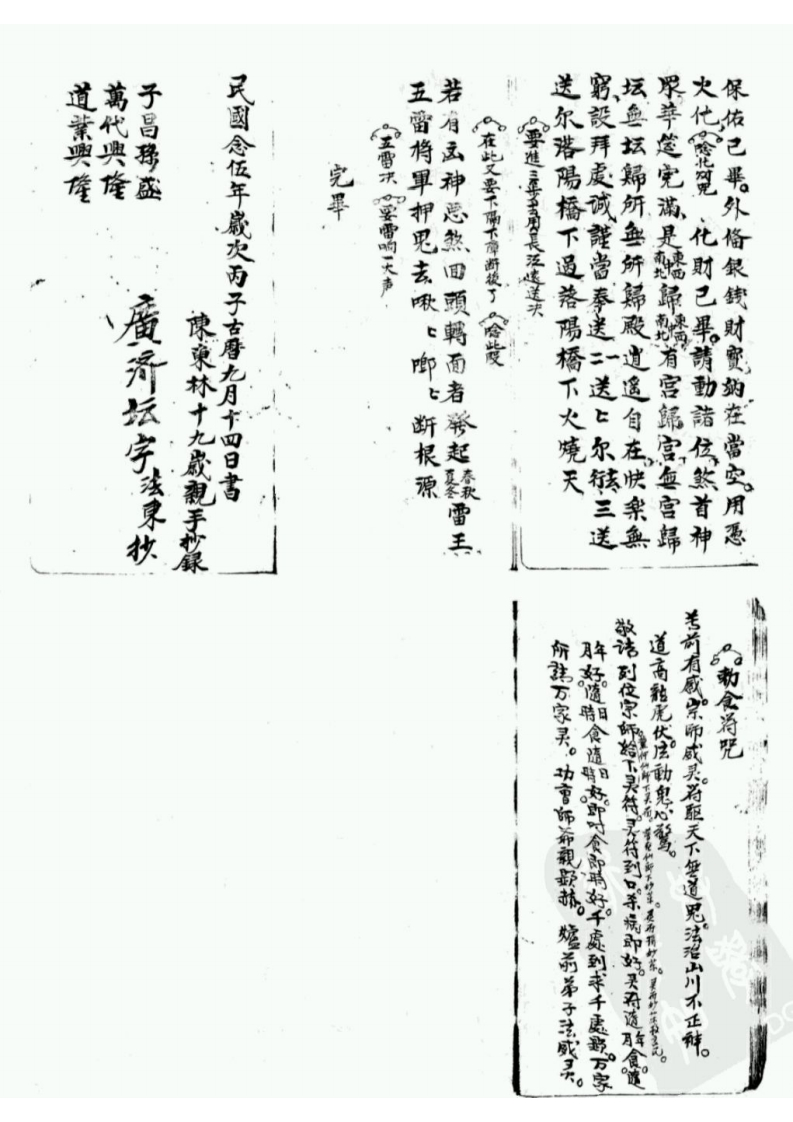 保佑已畢。外俻銀錢財寳納在當空。用憑
火化。唸化財咒 化財已畢。請動諸位煞首神
眾華筵完滿、是東西南北歸東西南北有宮歸宮、無宮歸
坛無坛歸所無所歸殿逍遥自在快楽無
窮、設拜處誠謹當奉送二一送匕尔行、三送
送尔洛陽橋下過落陽橋下火燒天
要進三步又用長江遠送决
在此又要下隔下障断後了 唸此段
若有凶神惡煞回頭轉面者發起春秋夏冬雷王
五雷将軍押鬼去啾匕啷匕断根源
五雷决 要雷响一大声
完畢
民國念伍年歲次丙子古曆九月十四日書
陳東林十九歲親手抄録
廣济坛字法東抄
子昌孫盛
萬代興隆
道業興隆
勅食符咒
前有感。宗師威灵。符驅天下無道鬼。法治山川不正神。
道高龍虎伏。法動鬼心驚。
敬請到位宗師給下灵符。灵符到口。杀病即好。灵符随年食随
年好。随日食随日好。随時食随時好。即时食即時好。千處到求千處顯。万家
所請万家灵。功曹師爺親顕赫。爐前弟子法威灵。